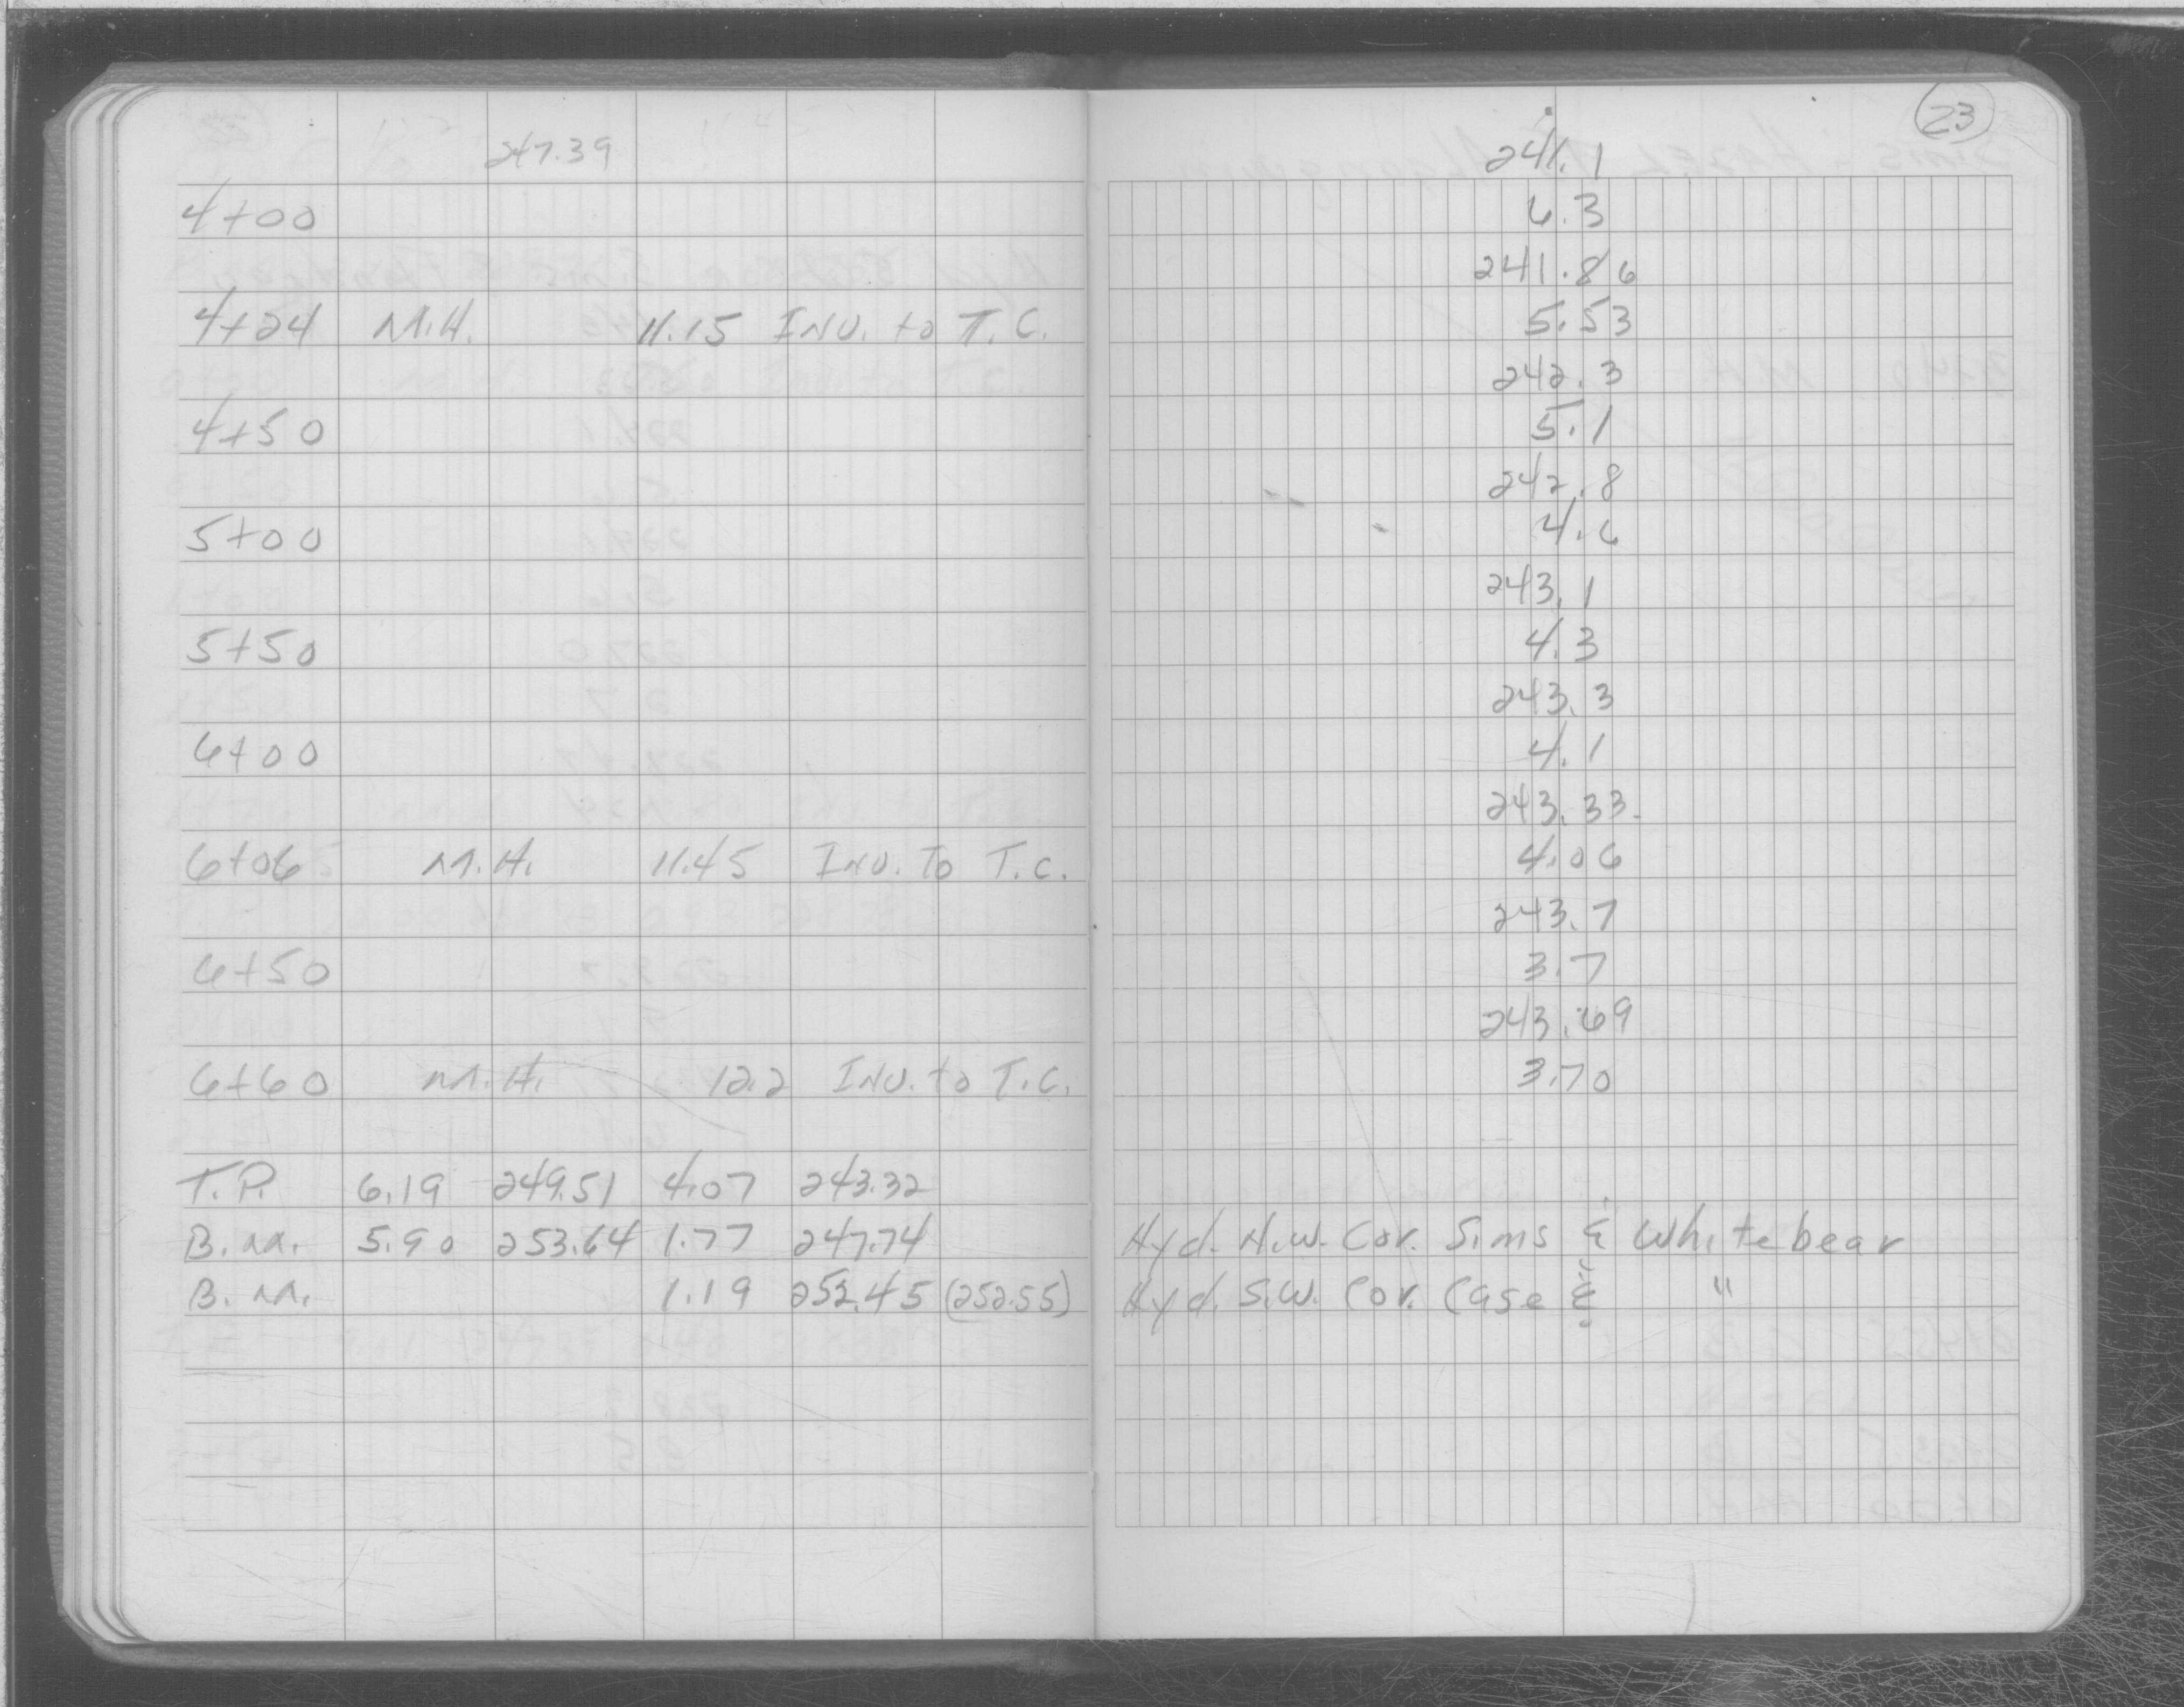 23
247.39 241.1
4+00 6.3
241.86
4+24 M.H. 11.15 INV. to T.C. 5.53
242.3
4+50 5.1
242.8
5+00 4.6
243.1
5+50 4.3
243.3
6+00 4.1
243.33
6+06 M.H. 11.45 INV. To T.C. 4.06
243.7
6+50 3.7
243.69
6+60 M.H. 12.2 INV. to T.C. 3.70
T.P. 6.19 249.51 4.07 243.32
B.M. 5.90 253.64 1.77 247.74 Hyd. N.W. Cor. Sims & Whitebear
B.M. 1.19 252.45 (252.55) Hyd. S.W. Cor. Case & "